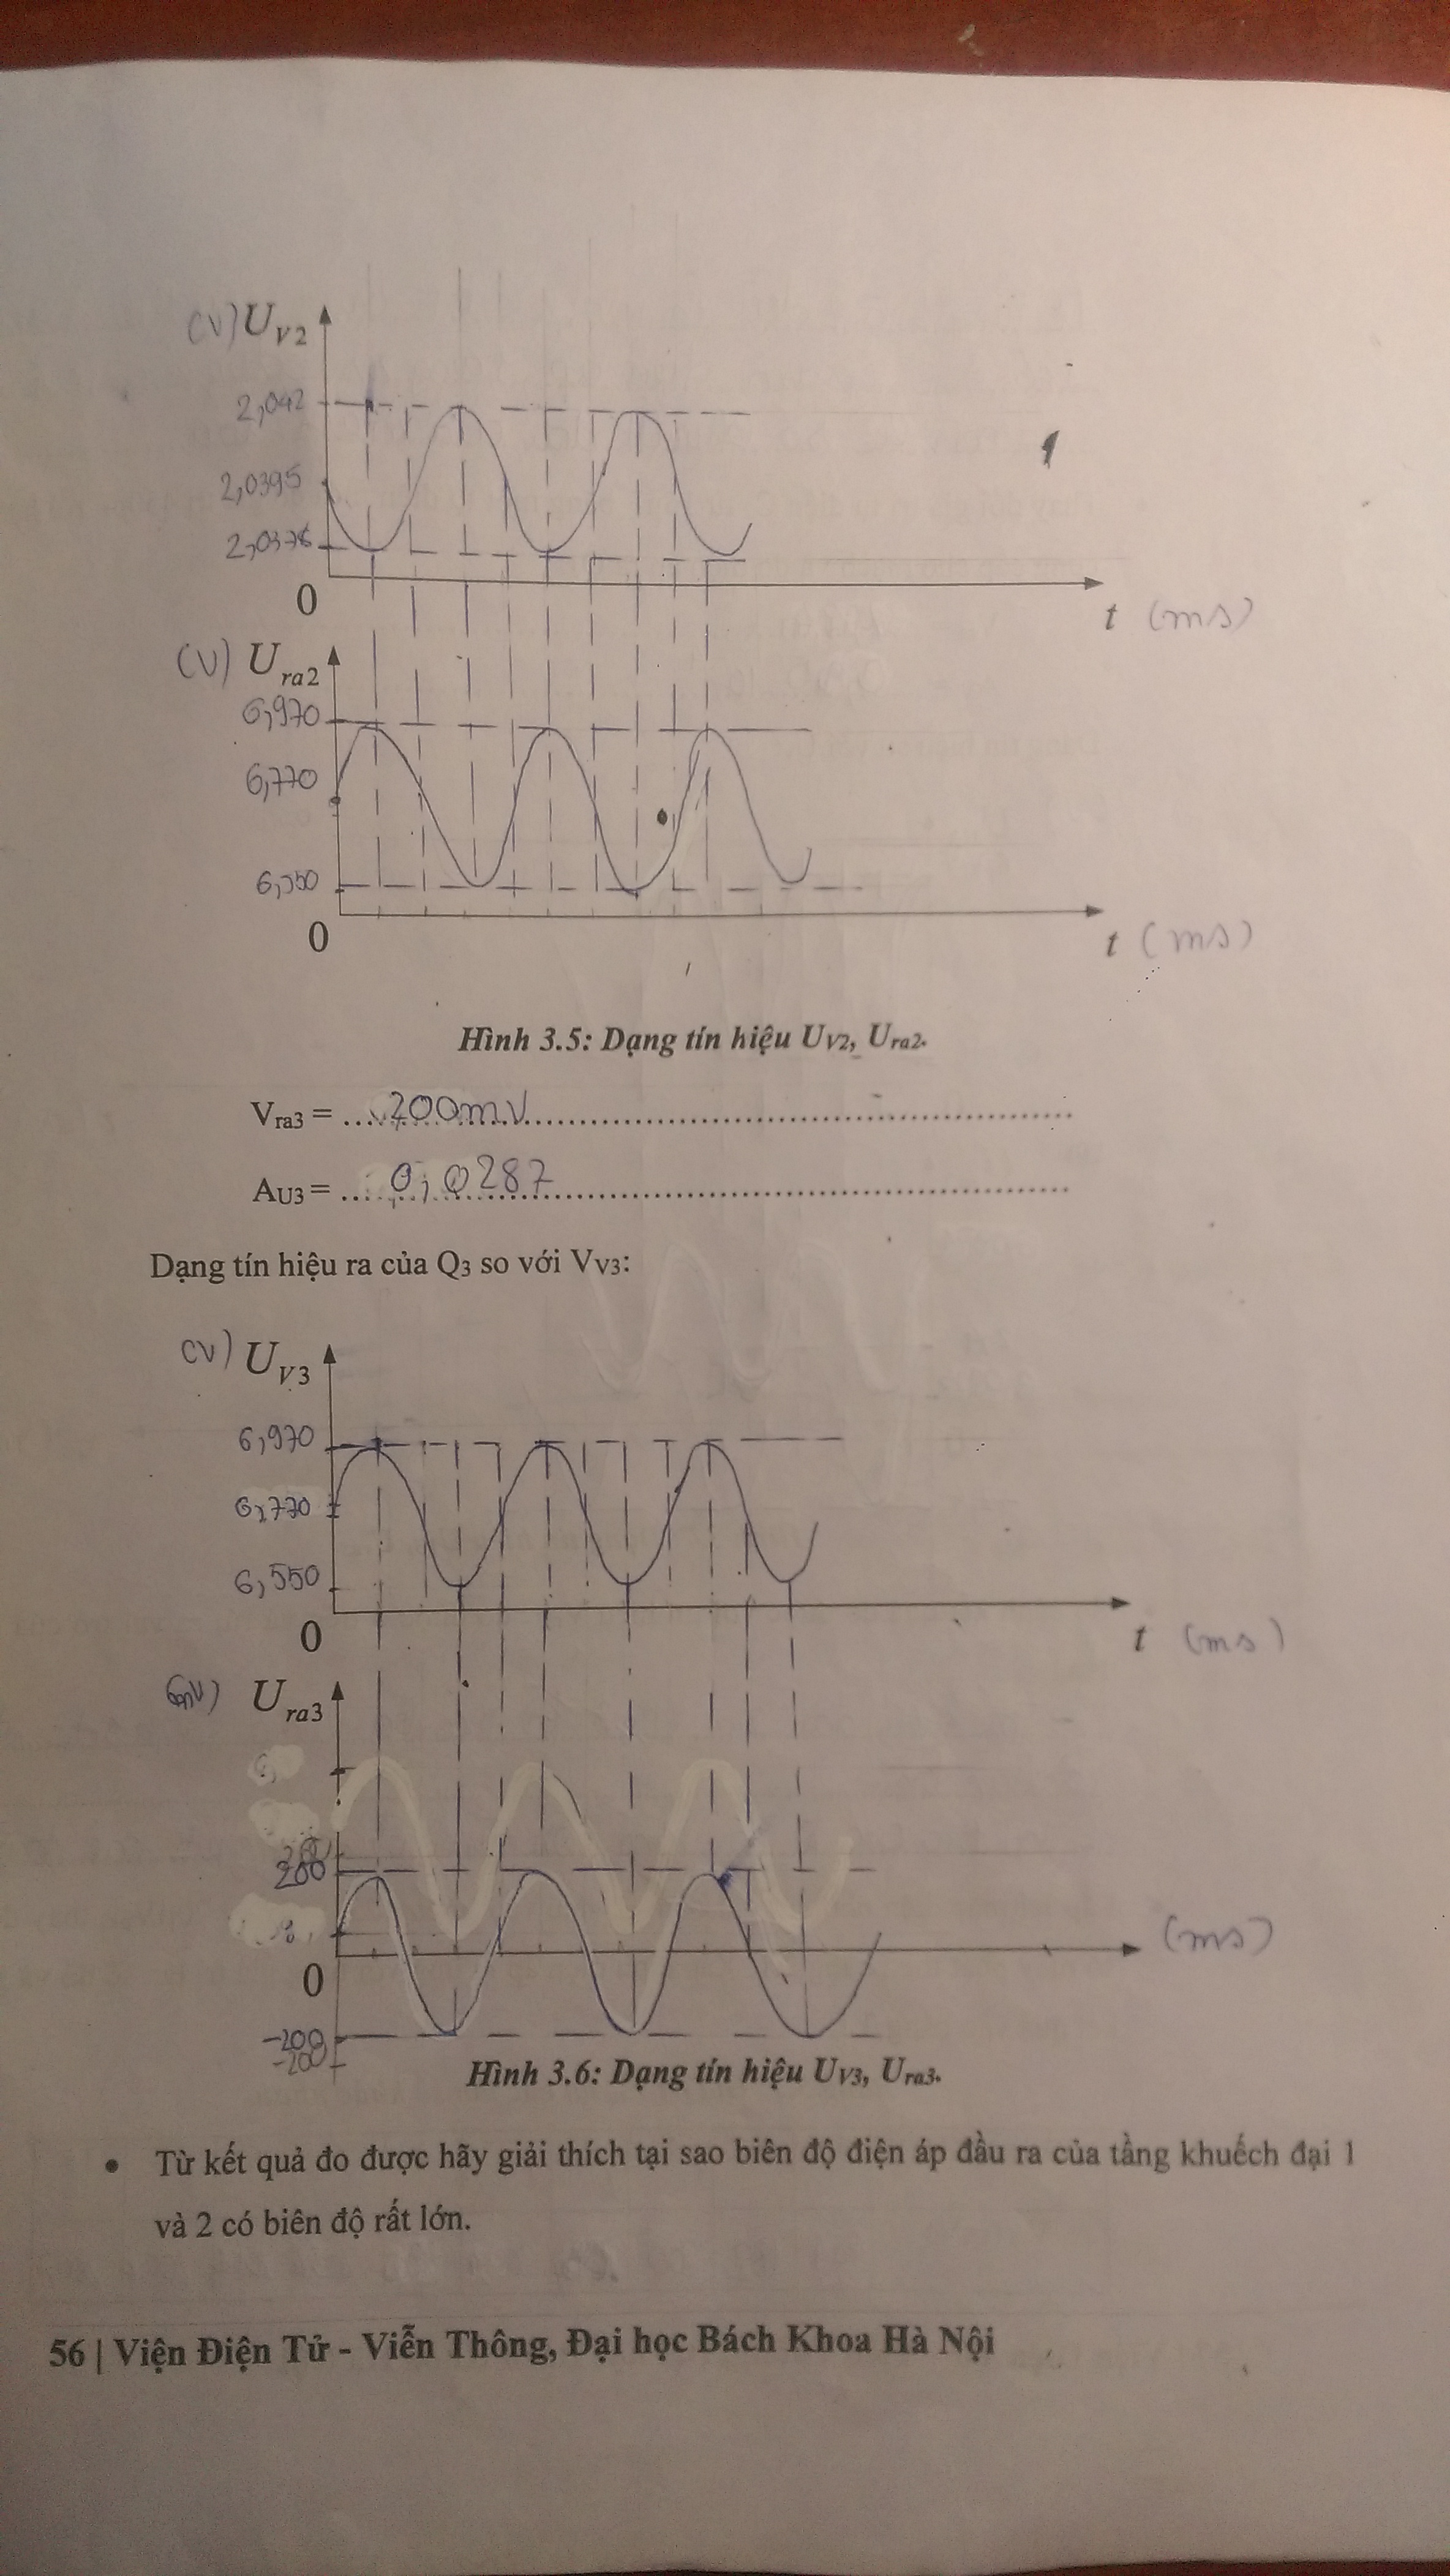 (V) U V2
2,042
2,0395
2,0376
0
t (ms)
(V) U ra2
6,970
6,770
6,550
0
t (ms)
Hình 3.5: Dạng tín hiệu UV2, Ura2.
Vra3 = ....200mV....
AU3 = ....0,0287....
Dạng tín hiệu ra của Q3 so với VV3:
(V) U V3
6,970
6,770
6,550
0
t (ms)
(mV) U ra3
200
(ms)
0
-200
-200
Hình 3.6: Dạng tín hiệu UV3, Ura3.
• Từ kết quả đo được hãy giải thích tại sao biên độ điện áp đầu ra của tầng khuếch đại 1
và 2 có biên độ rất lớn.
56 | Viện Điện Tử - Viễn Thông, Đại học Bách Khoa Hà Nội